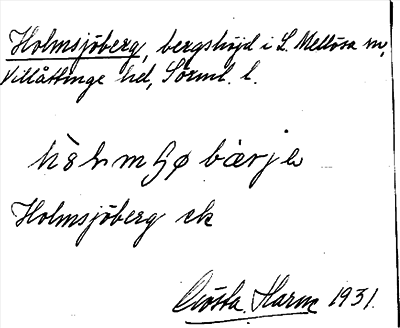 Holmsjöberg, bergshöjd i L. Mellösa sn,
Villåttinge hd, Sörml. l.
Holmsjöberg ek
Gösta Harm 1931.